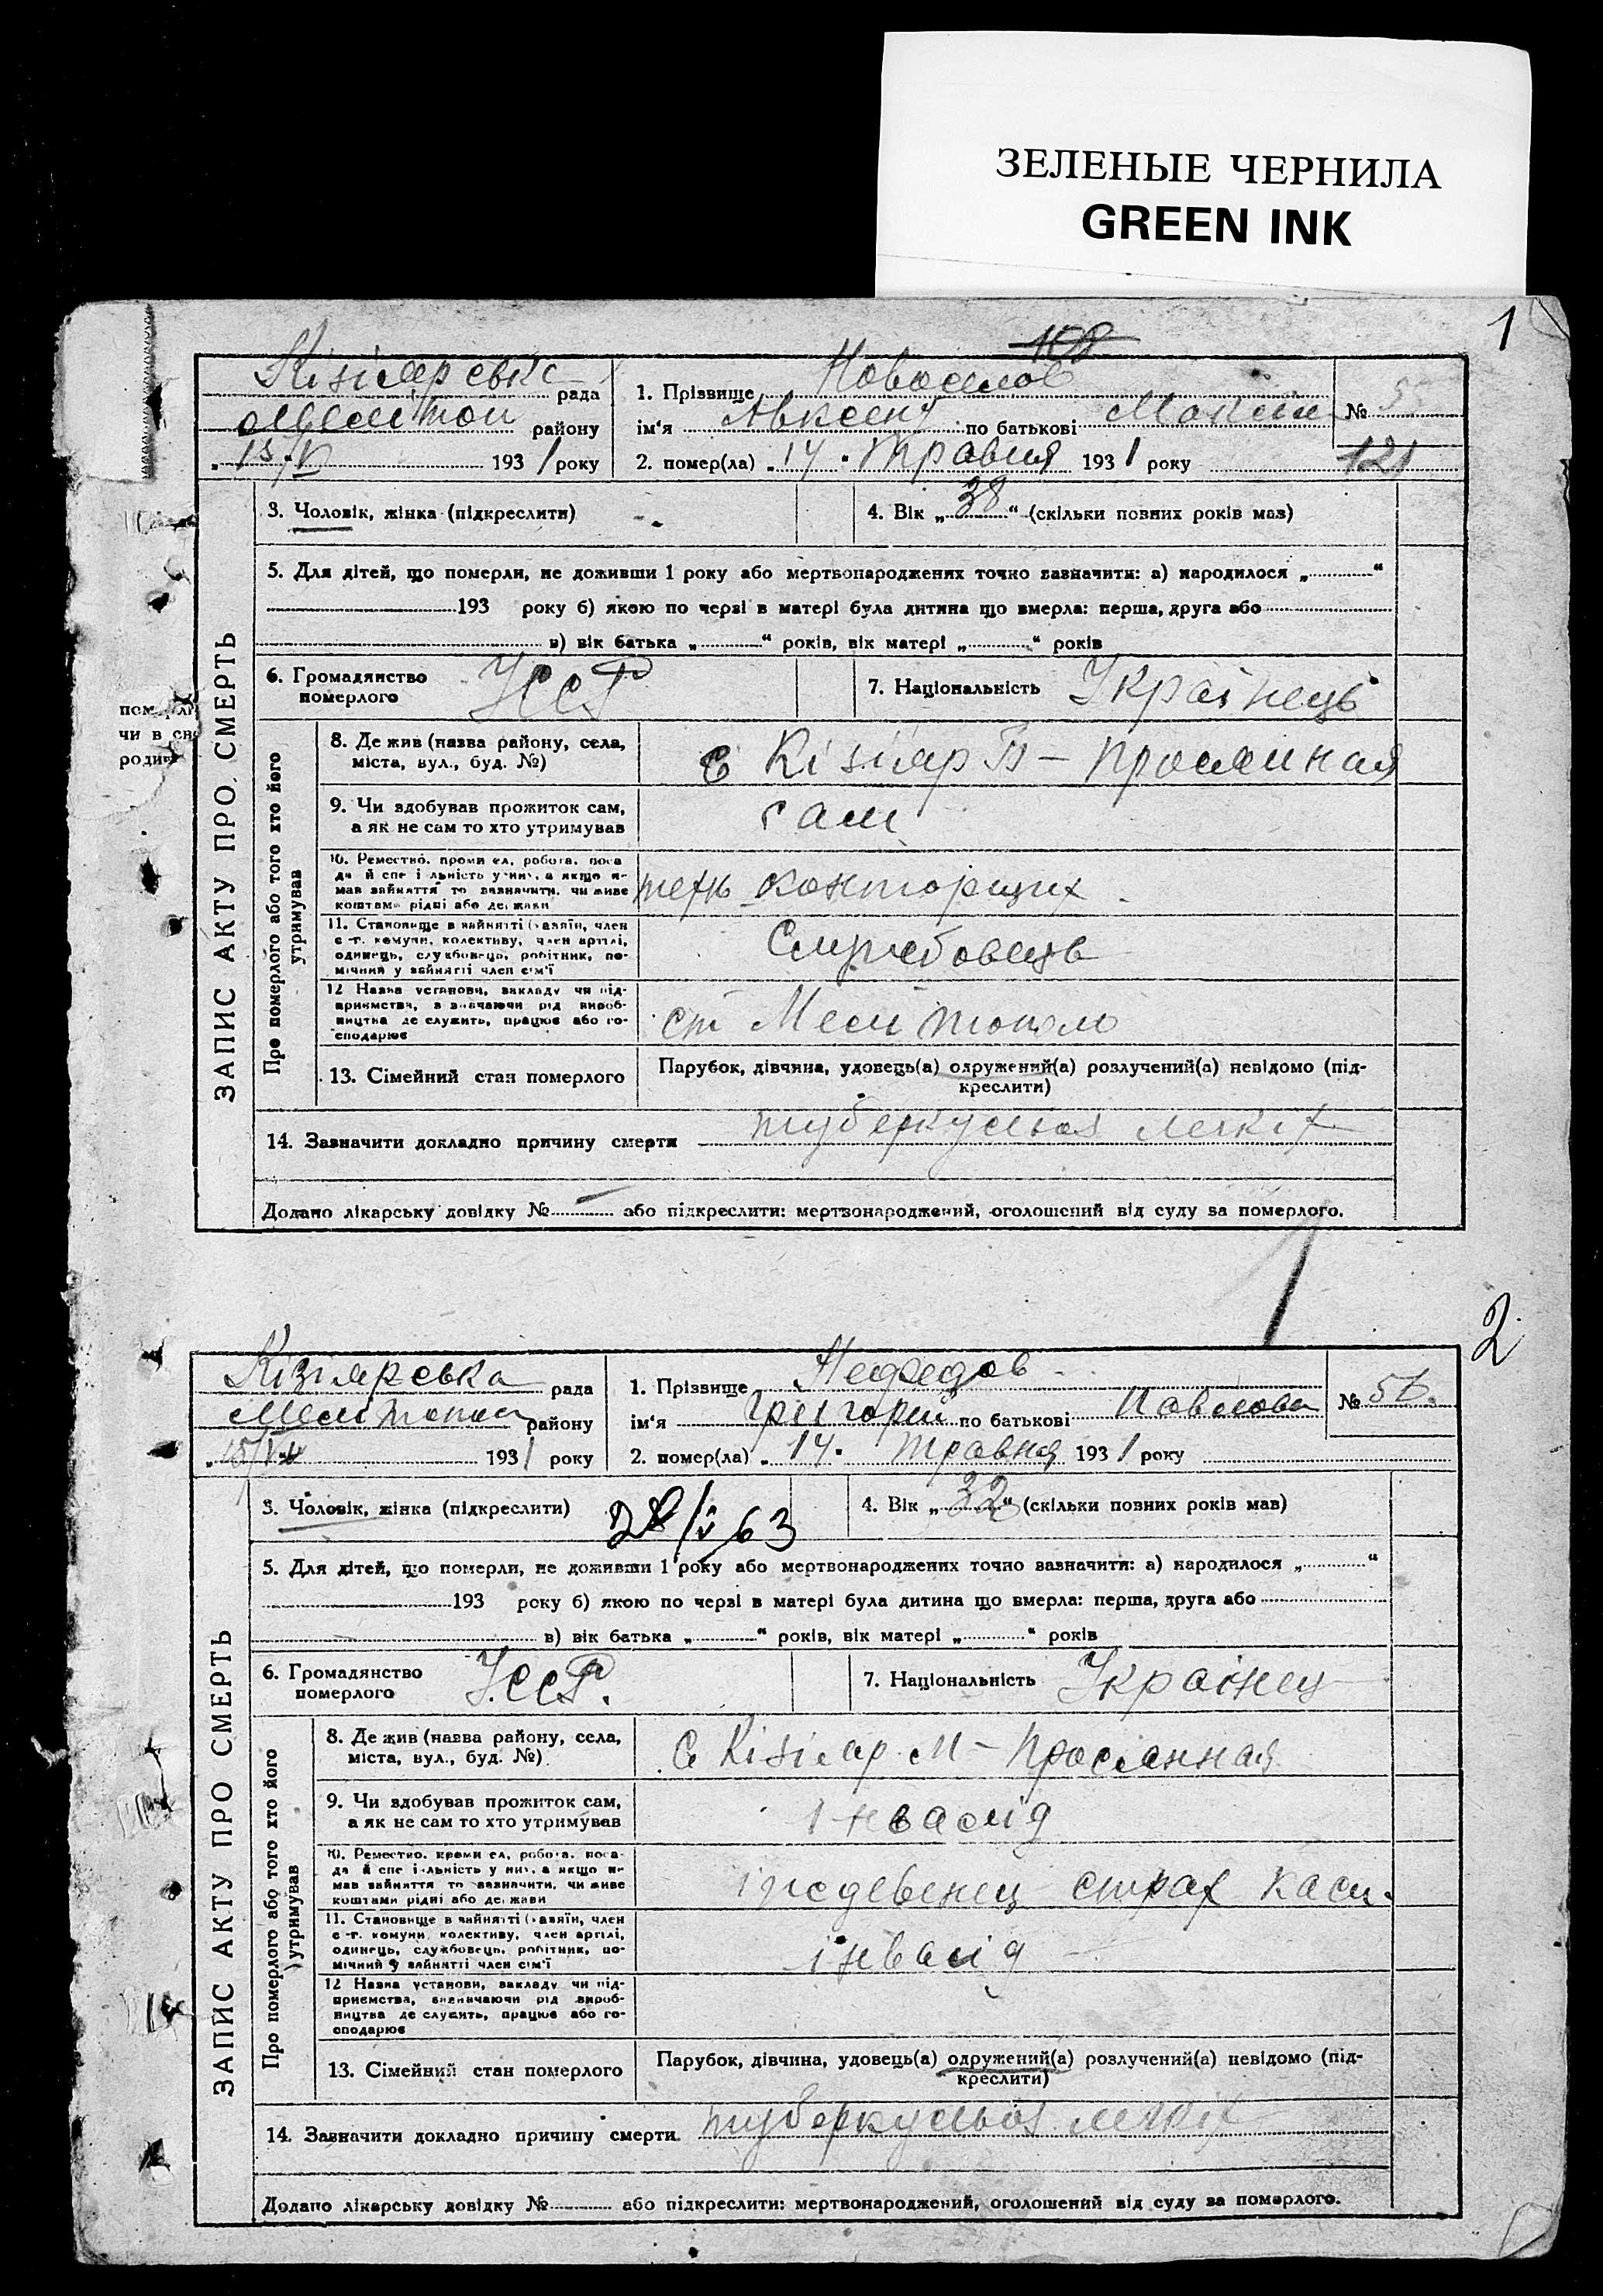 ЗЕЛЕНЫЕ ЧЕРНИЛА
GREEN INK
1
108
Кізіярська рада
Мелітоп району
15/V 1931 року
1. Прізвище Новоселов
ім'я Авксент по батькові Максим
2. помер(ла) „14" Травня 1931 року
№ 5
121
ЗАПИС АКТУ ПРО СМЕРТЬ
3. Чоловік, жінка (підкреслити)
4. Вік „38" (скільки повних років мав)
5. Для дітей, що померли, не доживши 1 року або мертвонароджених точно зазначити: а) народилося „ "
193 року б) якою по черзі в матері була дитина що вмерла: перша, друга або
в) вік батька „ " років, вік матері „ " років
6. Громадянство померлого УССР
7. Національність Українець
Про померлого або того хто його утримував
8. Де жив (назва району, села,
міста, вул., буд. №)
с Кізіяр
9. Чи здобував прожиток сам,
а як не сам то хто утримував
сам
10. Ремество, промисел, робота, поса-
да й спеціальність у них, а якщо не
мав зайняття то зазначити, чи живе
коштами рідні або держави
техн конторщик
11. Становище в зайнятті (хазяїн, член
с.-г. комуни, колективу, член артілі,
одинець, службовець, робітник, по-
мічний у зайнятті член сім'ї
Службовець
12 Назва установи, закладу чи під-
приємства, зазначаючи рід вироб-
ництва де служить, працює або го-
сподарює
ст Мелітополь
13. Сімейний стан померлого
Парубок, дівчина, удовець(а) одружений(а) розлучений(а) невідомо (під-
креслити)
14. Зазначити докладно причину смерти туберкульоз легких
Додано лікарську довідку № або підкреслити: мертвонароджений, оголошений від суду за померлого.
пом
чи в
роди
2
Кізіярська рада
Мелітопол району
15/V 1931 року
1. Прізвище Нефедов
ім'я Григорій по батькові Павлова
2. помер(ла) „14. травня 1931 року
№
ЗАПИС АКТУ ПРО СМЕРТЬ
3. Чоловік, жінка (підкреслити)
63
4. Вік „32" (скільки повних років мав)
5. Для дітей, що померли, не доживши 1 року або мертвонароджених точно зазначити: а) народилося „ "
193 року б) якою по черзі в матері була дитина що вмерла: перша, друга або
в) вік батька „ " років, вік матері „ " років
6. Громадянство померлого УССР.
7. Національність Українец
Про померлого або того хто його утримував
8. Де жив (назва району, села,
міста, вул., буд. №)
с Кізіяр
9. Чи здобував прожиток сам,
а як не сам то хто утримував
інвалід
10. Ремество, промисел, робота, поса-
да й спеціальність у них, а якщо не
мав зайняття то зазначити, чи живе
коштами рідні або держави
страх каси.
11. Становище в зайнятті (хазяїн, член
с.-г. комуни, колективу, член артілі,
одинець, службовець, робітник, по-
мічний у зайнятті член сім'ї
інвалід
12 Назва установи, закладу чи під-
приємства, зазначаючи рід вироб-
ництва де служить, працює або го-
сподарює
13. Сімейний стан померлого
Парубок, дівчина, удовець(а) одружений(а) розлучений(а) невідомо (під-
креслити)
14. Зазначити докладно причину смерти. туберкульоз легких
Додано лікарську довідку № або підкреслити: мертвонароджений, оголошений від суду за померлого.